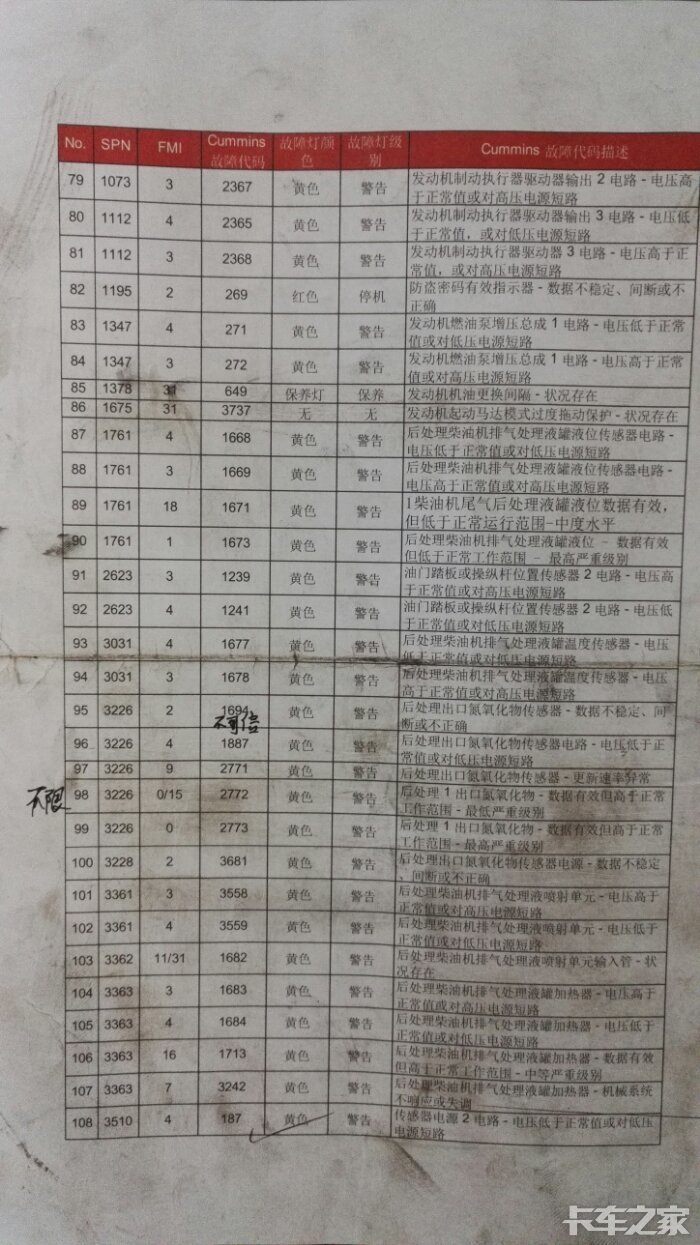 No. SPN FMI Cummins 故障代码 故障灯颜色 故障灯级别 Cummins 故障代码描述
79 1073 3 2367 黄色 警告 发动机制动执行器驱动器输出 2 电路 - 电压高
于正常值或对高压电源短路
80 1112 4 2365 黄色 警告 发动机制动执行器驱动器输出 3 电路 - 电压低
于正常值，或对低压电源短路
81 1112 3 2368 黄色 警告 发动机制动执行器驱动器 3 电路 - 电压高于正
常值，或对高压电源短路
82 1195 2 269 红色 停机 防盗密码有效指示器 - 数据不稳定、间断或不
正确
83 1347 4 271 黄色 警告 发动机燃油泵增压总成 1 电路 - 电压低于正常
值或对低压电源短路
84 1347 3 272 黄色 警告 发动机燃油泵增压总成 1 电路 - 电压高于正常
值或对高压电源短路
85 1378 31 649 保养灯 保养 发动机机油更换间隔 - 状况存在
86 1675 31 3737 无 无 发动机起动马达模式过度拖动保护 - 状况存在
87 1761 4 1668 黄色 警告 后处理柴油机排气处理液罐液位传感器电路 -
电压低于正常值或对低压电源短路
88 1761 3 1669 黄色 警告 后处理柴油机排气处理液罐液位传感器电路 -
电压高于正常值或对高压电源短路
89 1761 18 1671 黄色 警告 1柴油机尾气后处理液罐液位数据有效，
但低于正常运行范围-中度水平
90 1761 1 1673 黄色 警告 后处理柴油机排气处理液罐液位 – 数据有效
但低于正常工作范围 – 最高严重级别
91 2623 3 1239 黄色 警告 油门踏板或操纵杆位置传感器 2 电路 - 电压高
于正常值或对高压电源短路
92 2623 4 1241 黄色 警告 油门踏板或操纵杆位置传感器 2 电路 - 电压低
于正常值或对低压电源短路
93 3031 4 1677 黄色 警告 后处理柴油机排气处理液罐温度传感器 - 电压
低于正常值或对低压电源短路
94 3031 3 1678 黄色 警告 后处理柴油机排气处理液罐温度传感器 - 电压
高于正常值或对高压电源短路
95 3226 2 1694 黄色 警告 后处理出口氮氧化物传感器 - 数据不稳定、间
断或不正确
不可信
96 3226 4 1887 黄色 警告 后处理出口氮氧化物传感器电路 - 电压低于正
常值或对低压电源短路
97 3226 9 2771 黄色 警告 后处理出口氮氧化物传感器 - 更新速率异常
98 3226 0/15 2772 黄色 警告 后处理 1 出口氮氧化物 - 数据有效但高于正常
工作范围 - 最低严重级别
99 3226 0 2773 黄色 警告 后处理 1 出口氮氧化物 - 数据有效但高于正常
工作范围 - 最高严重级别
100 3228 2 3681 黄色 警告 后处理出口氮氧化物传感器电源 - 数据不稳定
、间断或不正确
101 3361 3 3558 黄色 警告 后处理柴油机排气处理液喷射单元 - 电压高于
正常值或对高压电源短路
102 3361 4 3559 黄色 警告 后处理柴油机排气处理液喷射单元 - 电压低于
正常值或对低压电源短路
103 3362 11/31 1682 黄色 警告 后处理柴油机排气处理液喷射单元输入管 - 状
况存在
104 3363 3 1683 黄色 警告 后处理柴油机排气处理液罐加热器 - 电压高于
正常值或对高压电源短路
105 3363 4 1684 黄色 警告 后处理柴油机排气处理液罐加热器 - 电压低于
正常值或对低压电源短路
106 3363 16 1713 黄色 警告 后处理柴油机排气处理液罐加热器 - 数据有效
但高于正常工作范围 - 中等严重级别
107 3363 7 3242 黄色 警告 后处理柴油机排气处理液罐加热器 - 机械系统
不响应或失调
108 3510 4 187 黄色 警告 传感器电源 2 电路 - 电压低于正常值或对低压
电源短路
卡车之家